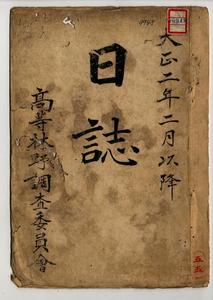 大正二年二月以降
日誌
高等林野調査委員會